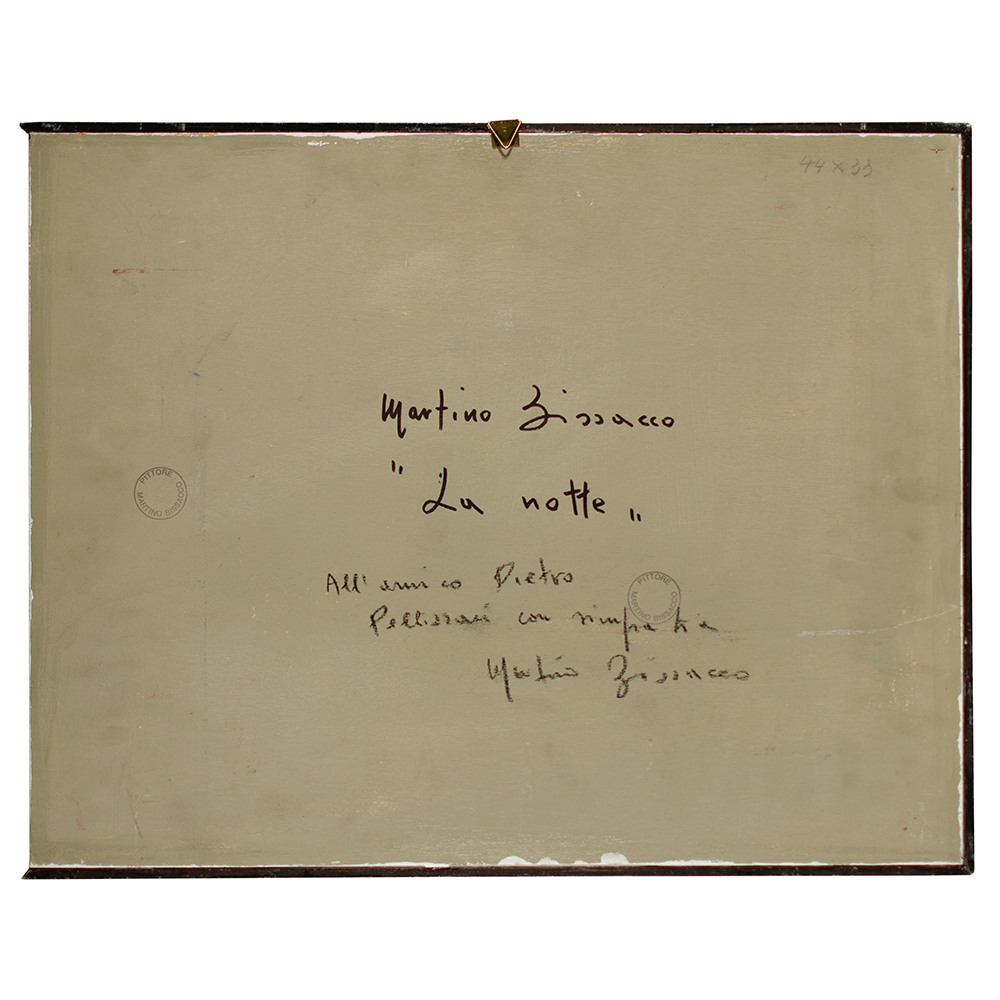 44 x 33
Martino Bissacco
"La notte"
PITTORE
MARTINO BISSACCO
All'amico Pietro
PITTORE
MARTINO BISSACCO
con simpatia
Martino Bissacco